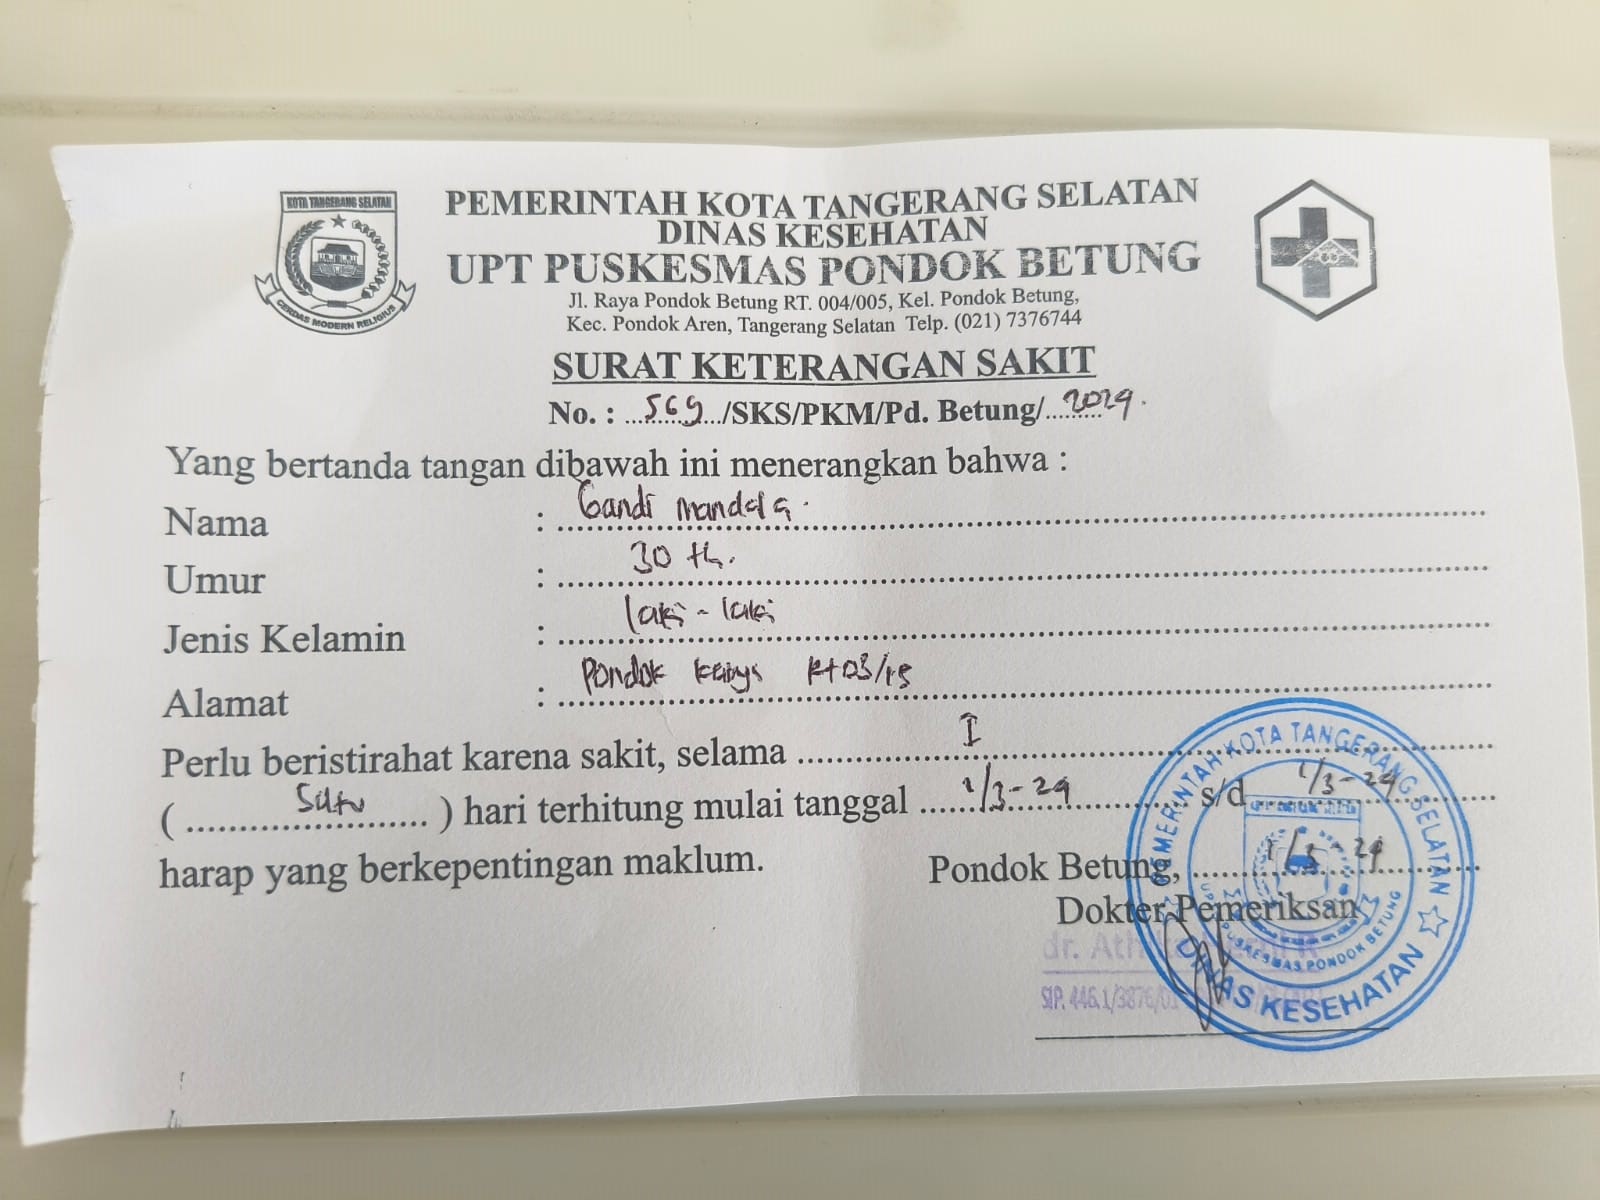 KOTA TANGERANG SELATAN
CERDAS MODERN RELIGIUS
PEMERINTAH KOTA TANGERANG SELATAN
DINAS KESEHATAN
UPT PUSKESMAS PONDOK BETUNG
Jl. Raya Pondok Betung RT. 004/005, Kel. Pondok Betung,
Kec. Pondok Aren, Tangerang Selatan Telp. (021) 7376744
SURAT KETERANGAN SAKIT
No. : 569/SKS/PKM/Pd. Betung/2024.
Yang bertanda tangan dibawah ini menerangkan bahwa :
Nama : Gandi Mandala.
Umur : 30 th.
Jenis Kelamin : laki-laki
Alamat : Pondok Rt 03/15
Perlu beristirahat karena sakit, selama I
( Satu ) hari terhitung mulai tanggal 1/3-24 s/d 1/3-24
harap yang berkepentingan maklum.
Pondok Betung, 1/3-24
Dokter Pemeriksan
dr.
SIP. 446.1/3876/
PEMERINTAH KOTA TANGERANG SELATAN
UPT PUSKESMAS PONDOK BETUNG
DINAS KESEHATAN